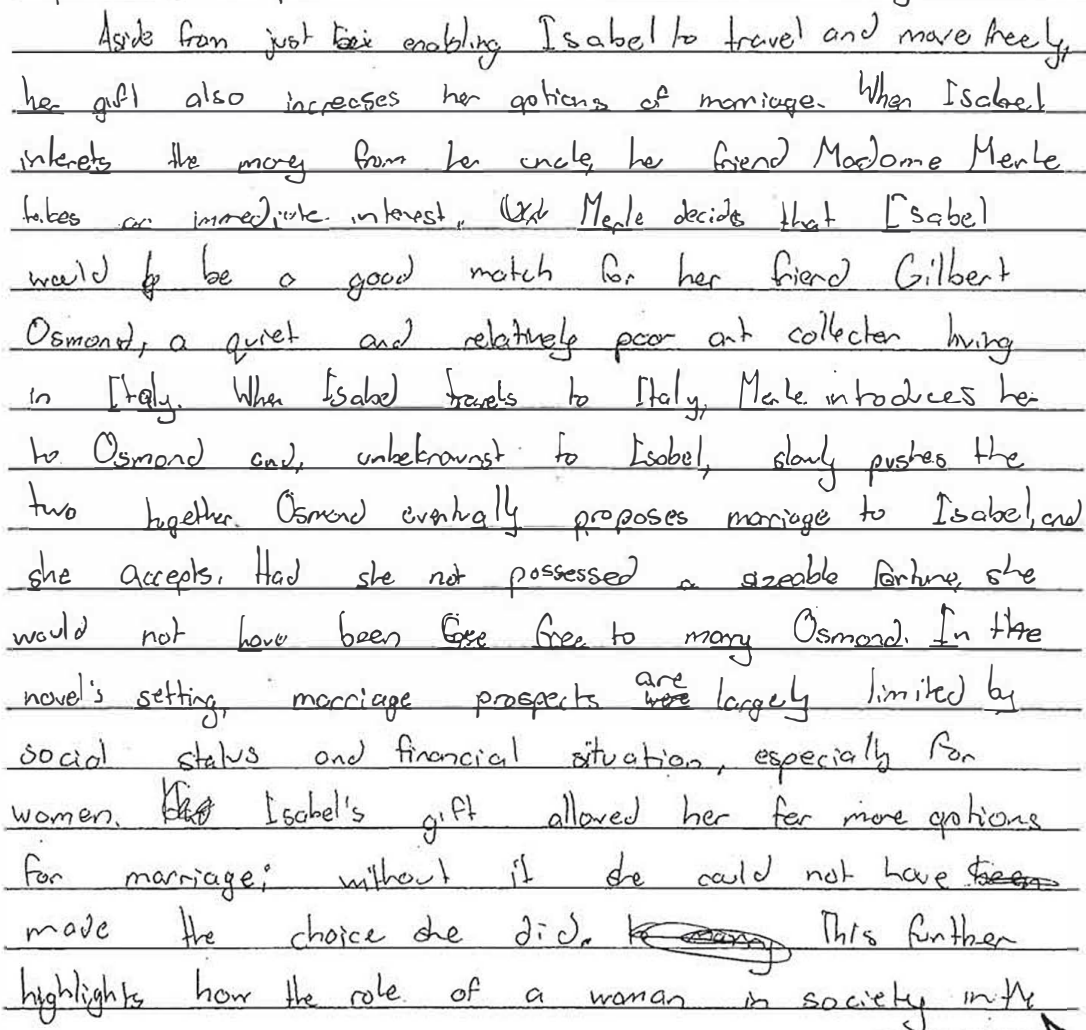 Aside from just enabling Isabel to travel and move freely,
her gift also increases her options of marriage. When Isabel
interets the money from her uncle, her friend Madame Merle
takes an immediate interest. Merle decides that Isabel
would be a good match for her friend Gilbert
Osmond, a quiet and relatively poor art collecter living
in Italy. When Isabel travels to Italy, Merle introduces her
to Osmond and, unbeknownst to Isabel, slowly pushes the
two together. Osmond eventually proposes marriage to Isabel, and
she accepts. Had she not possessed a sizeable fortune, she
would not have been free to marry Osmond. In the
novel's setting, marriage prospects are largely limited by
social status and financial situation, especially for
women. Isabel's gift allowed her far more options
for marriage; without it she could not have
made the choice she did. This further
highlights how the role of a woman in society in the